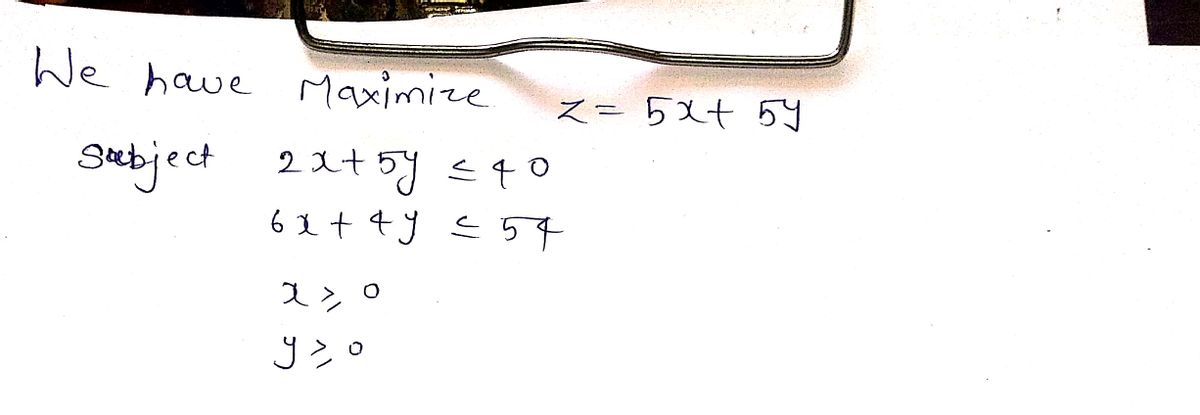 We have Maximize z = 5x + 5y
Subject 2x + 5y ≤ 40
6x + 4y ≤ 54
x ≥ 0
y ≥ 0